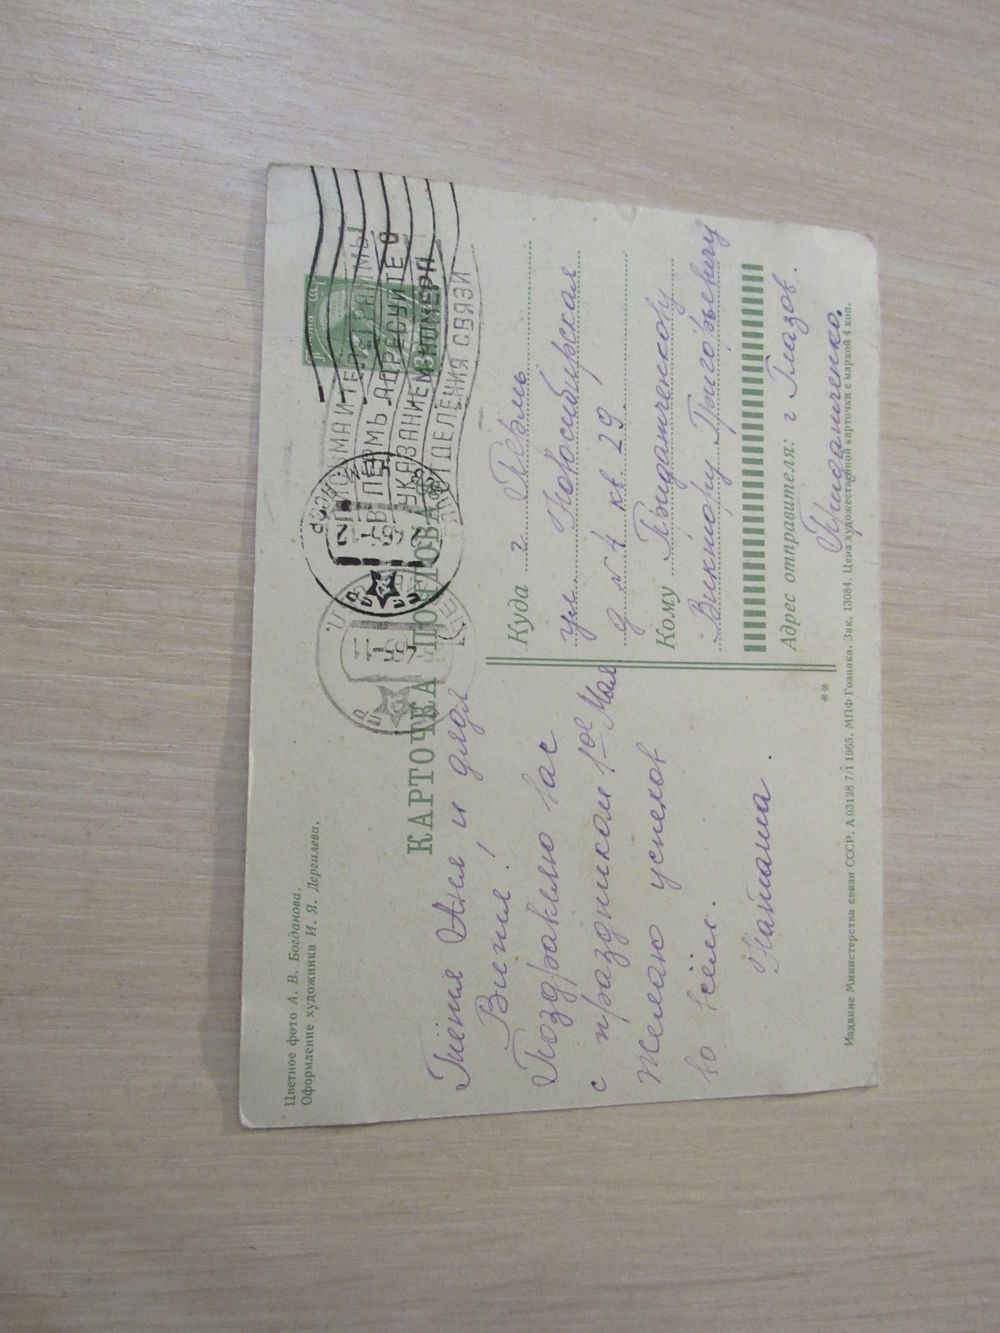 Цветное фото А. В. Богданова.
Оформление художника И. Я. Дергилева.
КАРТОЧКА ПОЧТОВАЯ
ВНИМАНИЕ
В ПЕРМЬ АДРЕСУЙТЕ С
УКАЗАНИЕМ НОМЕРА
ОТДЕЛЕНИЯ СВЯЗИ
Тётя Аня и дядя
Витя!
Поздравляю вас
с праздником 1ое Мая
Желаю успехов
во всём.
Наташа.
Куда г. Пермь
ул. Новосибирская
д N 4 кв 29
Кому Придатченкову
Виктору Григорьевичу
Адрес отправителя: г Глазов.
Придатченко.
**
Издание Министерства связи СССР. А 03128 7/I 1965. МПФ Гознака. Зак. 13084. Цена художественной карточки с маркой 4 коп.